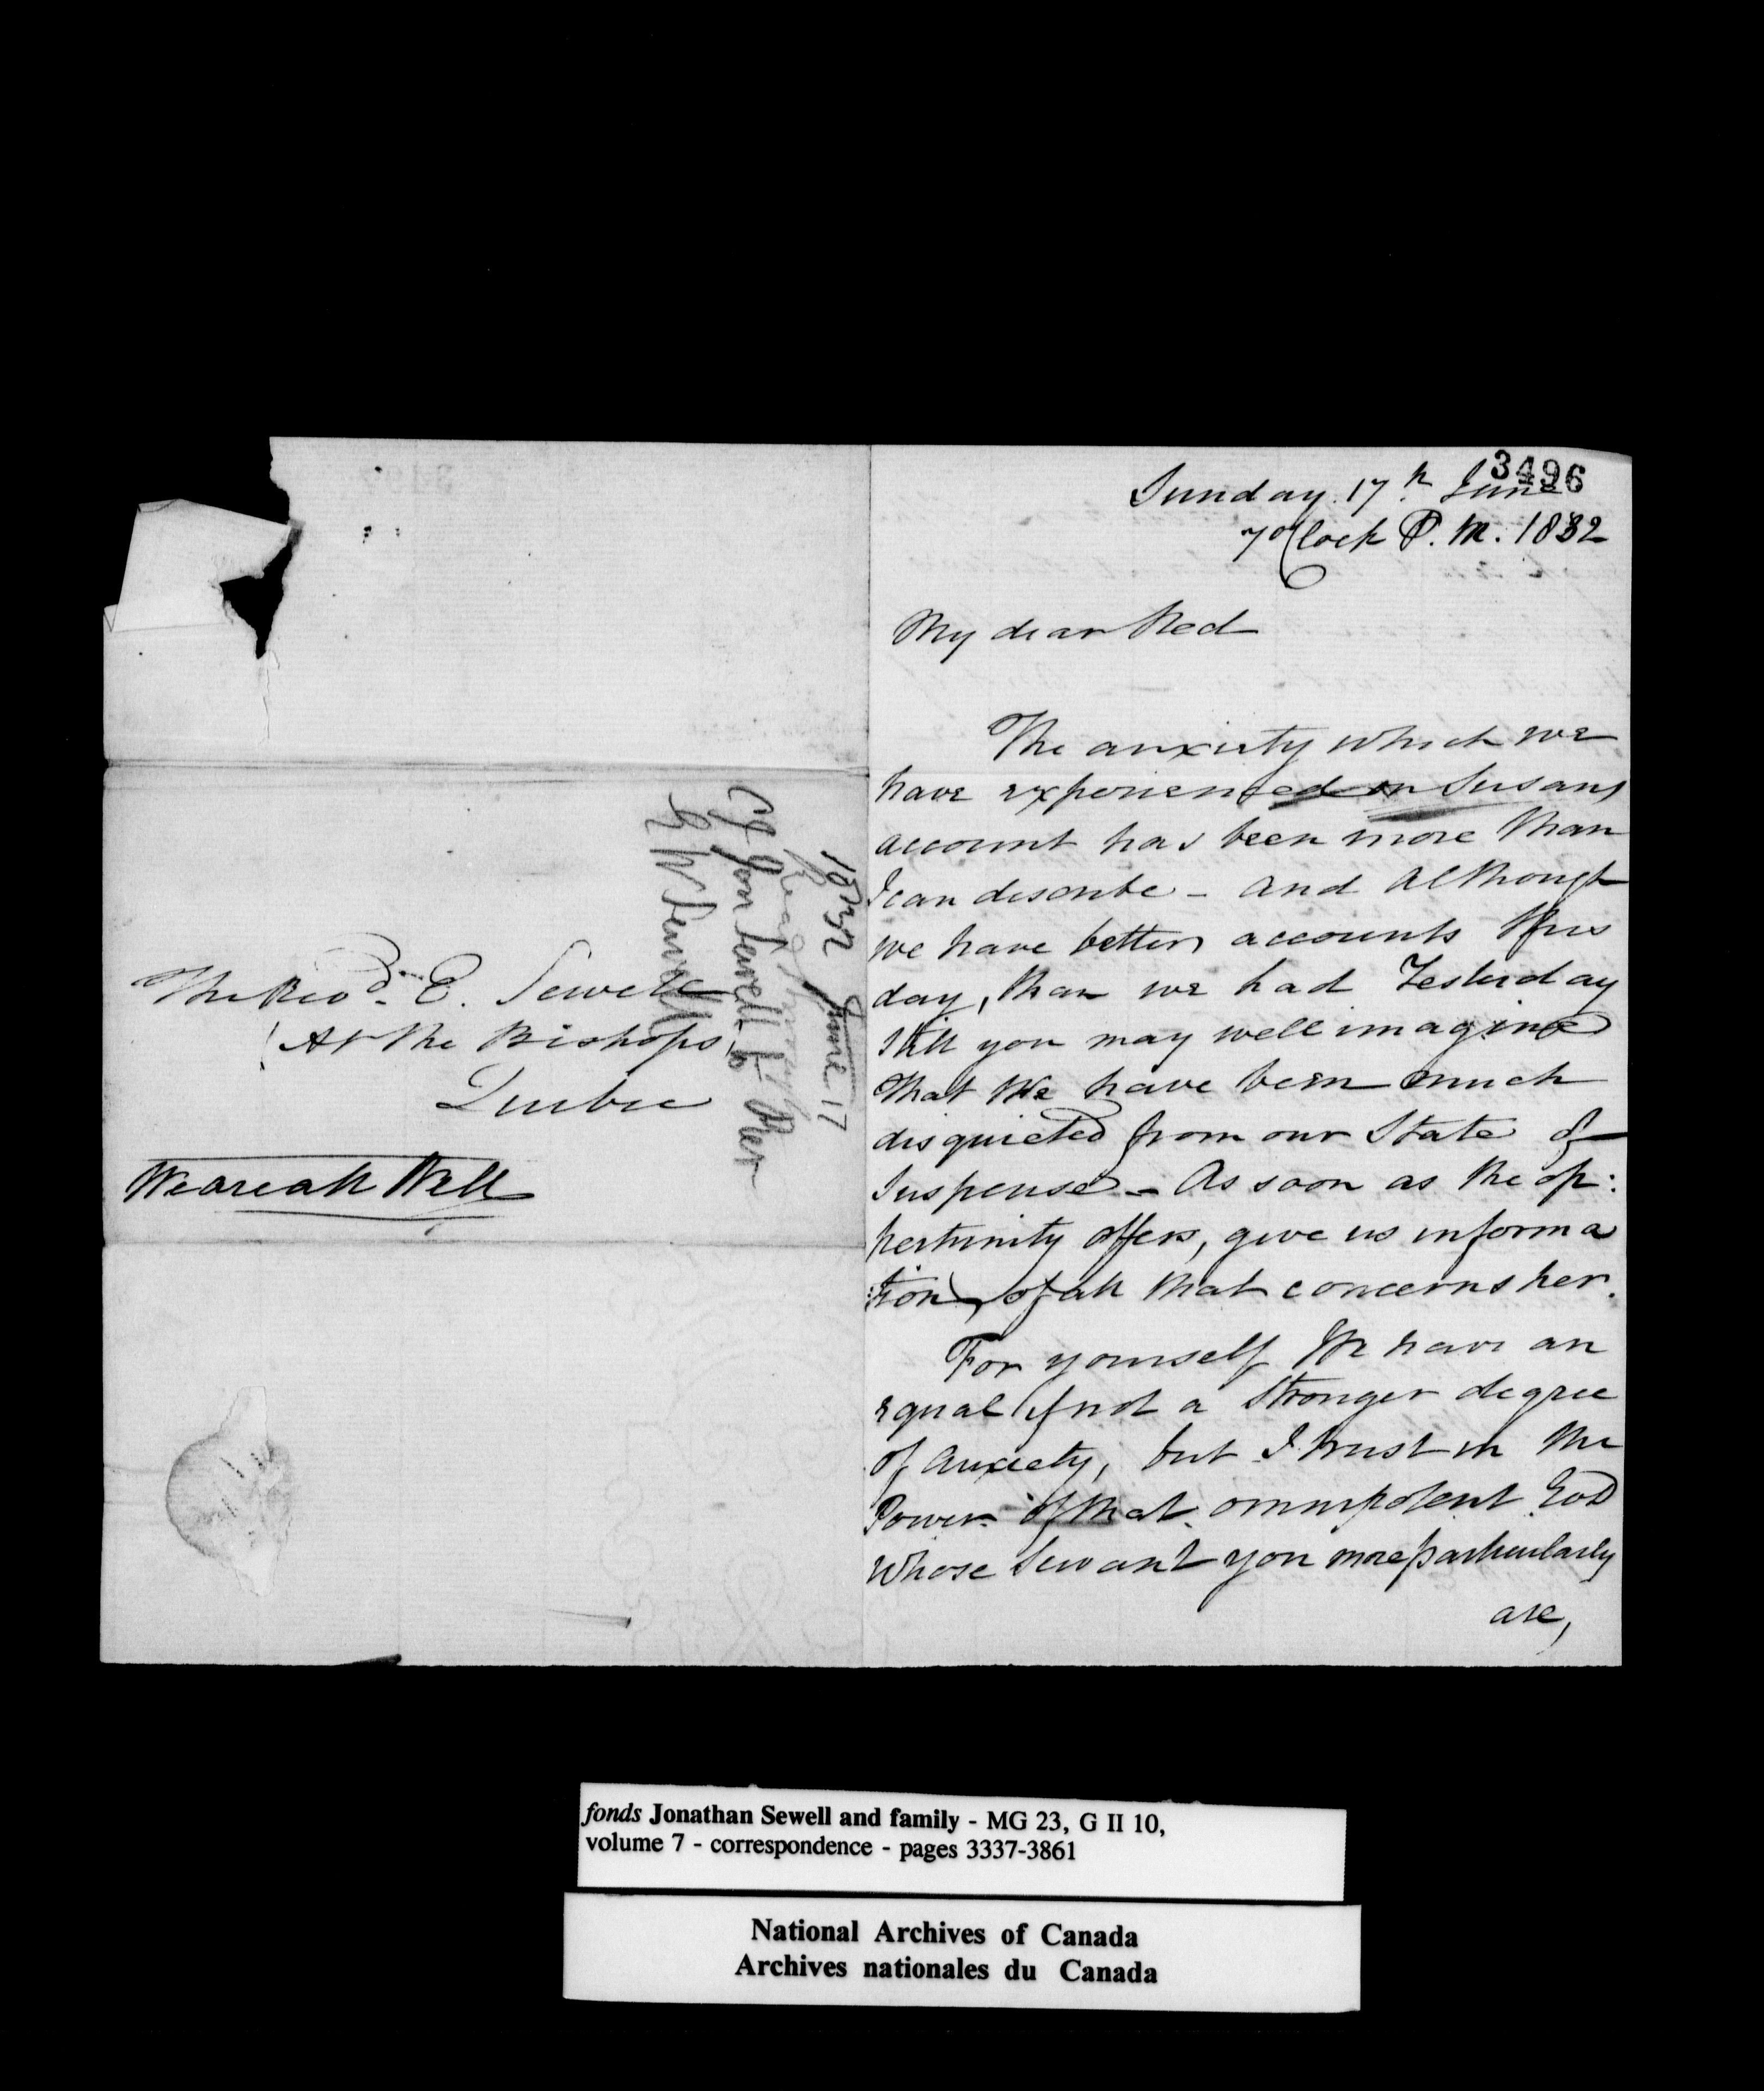 The Revd. E. Sewell
At the Bishops
Quebec
We are all Well
1832 June 17
C J Jon Sewell to Rev
E W Sewell
3496
Sunday. 17th June
7 oClock P. M. 1832
My dear Ned
The anxiety which we
have experienced on Susans
account has been more than
I can describe - and although
we have better accounts this
day, than we had Yesterday
still you may well imagine
that We have been much
disquieted from our State of
Suspense - As soon as the op:
pertunity offers, give us informa
:tion, of all that concerns her.
For yourself We have an
equal if not a Stronger degree
of Anxiety, but I trust in the
Power of that omnipotent God
Whose Servant you more particularly
are,
fonds Jonathan Sewell and family - MG 23, G II 10,
volume 7 - correspondence - pages 3337-3861
National Archives of Canada
Archives nationales du Canada